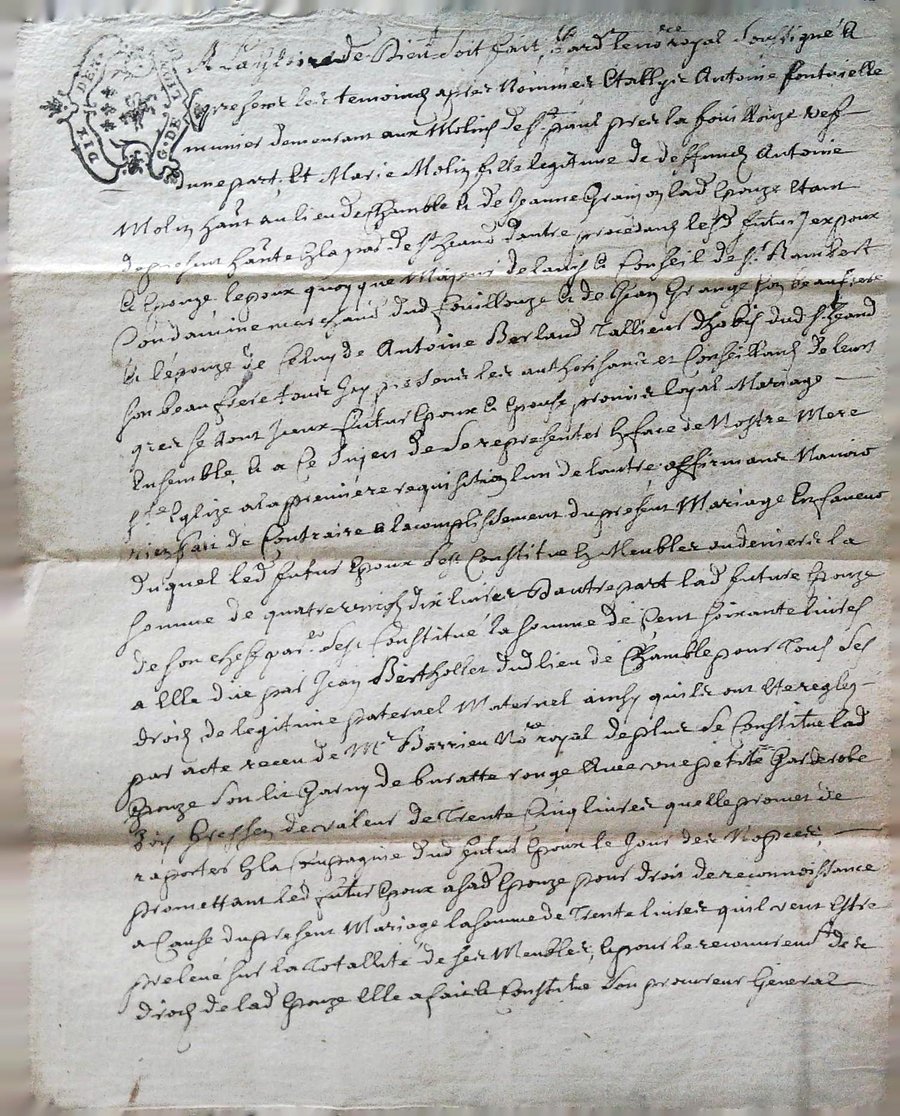 DIX DEN G. DE LION
A La gloire de Dieu soit fait, Pard. le no.re royal soubsigné &
presens les temoins apres Nommes Estably Antoine fontvielle
munier demeurant aux Molins de St. paul pres la fouillouze vef
dune part, Et Marie Molin fille legitime de deffuncts Antoine
Molin hant. au lieu de Chamble & de Jeanne Granjon lad. Epouze Etant
a present hante En la par. de St. Heand dautre procedans lesd. futur Jexpoux
& Epouze lepoux quoy que Majeur de lavis & Conseil de St. Rambert
Condamine marchand dud. fouillouze & de Jean Grange son beaufrere
& l'épouze de Celuy de Antoine Berland Tallieur dhabis dud. St. heand
son beau frere tous Icy presens les authorisants et Conseillants de leurs
grez se sont Iceux futur Epoux & Epouse promis loyal Mariage
Ensemble, & a Ce Sujet de Se representer En face de Nostre Mere
Ste. Eglize a la premiere requisition lun de lautre affirmants Navoir
rien fait de Contraire a lacomplissement du present Mariage En faveur
duquel led. futur Epoux sest Constitue En Meubles ou deniers la
somme de quatre vingts dix livres Dautre part lad. future Epouze
de son chef par. Sest Constitué la somme de Cent soixante livres
a Elle due par Jean Berthollet dud. lieu de Chamble pour Tous ses
droits de legitime paternel Maternel ainsy quils ont Ete reglez
par acte receu de Me. Barrieu No.re royal de plus se Constitue lad.
Epouze son lit Garny de buratte rouge Avec une petite Garderobe
bois de valeur de Trente Cinq livres quelle promet de
raporter En la Compagnie dud. futur Epoux le Jour des Nopces,
promettant led. futur Epoux a sad. Epouze pour droit de reconnoissance
a Cause du present Mariage la somme de Trente livres quil veut Estre
prelevé sur la Totallité de ses Meubles, & pour le recouvrem.t de se
droits de lad. Epouze Elle a fait & Constitue Son procureur General